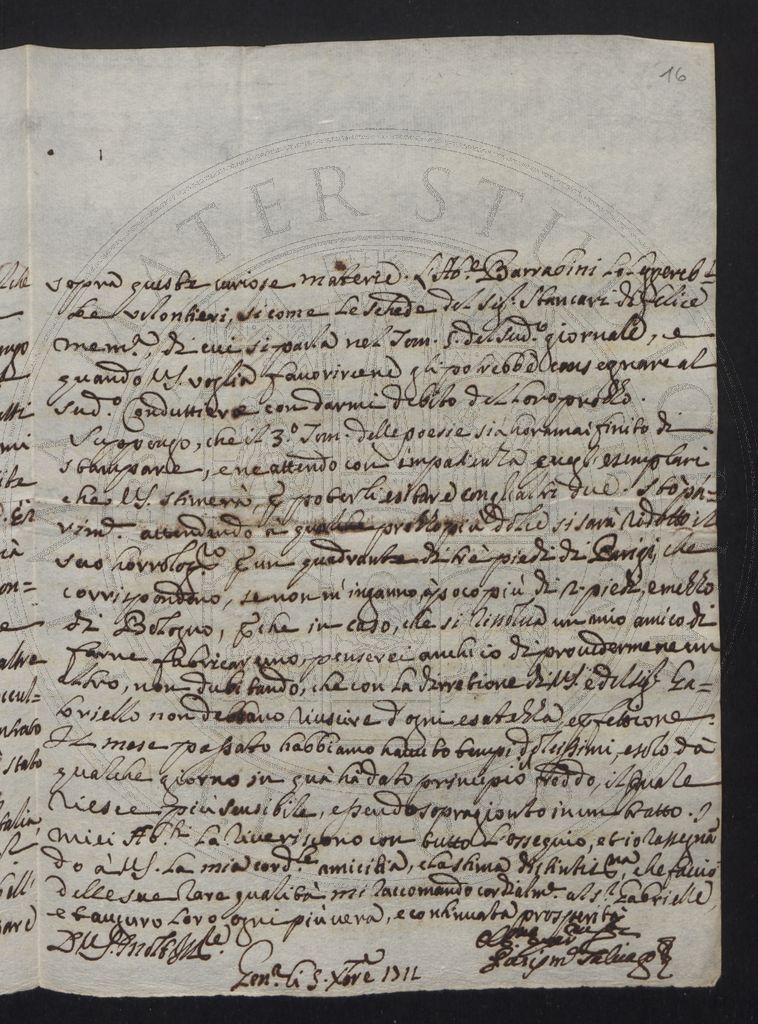 16
sopra queste curiose materie. L'Ab.e Barrabini le leggereb=
be volontieri, si come le schede del Sig.r Stancari di felice
mem.a, di cui si parla nel Tom. 5. del sud.o giornale, e
quando V.S. voglia favorircene gli potrebbe consegnare al
sud.o Conduttiere con darmi debito del loro prezzo.
Suppongo, che il 3.o Tom. delle poesie sia horamai finito di
stamparsi, e ne attendo con impatienza quegli esemplari
che V.S. stimerà, p poterli esitare con gli altri due. Stò pa=
rim.te attendendo à qualche prezzo si sarà ridotto il
suo horrolog.o p un quadrante di trè piedi di Parigi, che
corrispondono, se non m'inganno, à poco più di 2. piedi, e mezzo
di Bologna, p che in caso, che si risolva un mio amico di
farne fabricar uno, penserei anch'io di provedermene un
altro, non dubitando, che con la direttione di V.S. e del Sig.r Ga=
briello non debbano riuscire d'ogni esatezza, e perfettione.
Il mese passato habbiamo havuto tempi dolcissimi, e solo dà
qualche giorno in quà hà dato principio il freddo, il quale
riesce più sensibile, essendo sopragionto in un tratto. I
miei Ab.ti La riveriscono con tutto l'ossequio, et io rassegnan
do à V.S. la mia cord.le amicitia, e la stima distintiss.ma, che faccio
delle sue rare qualità mi raccomando cordialm.te al S.r Gabrielle,
et auguro loro ogni più vera, e continuata prosperità
Di V.S. Molt' Ill.re
Gen.a li 5 Xbre 1711
Parism.a Salvago